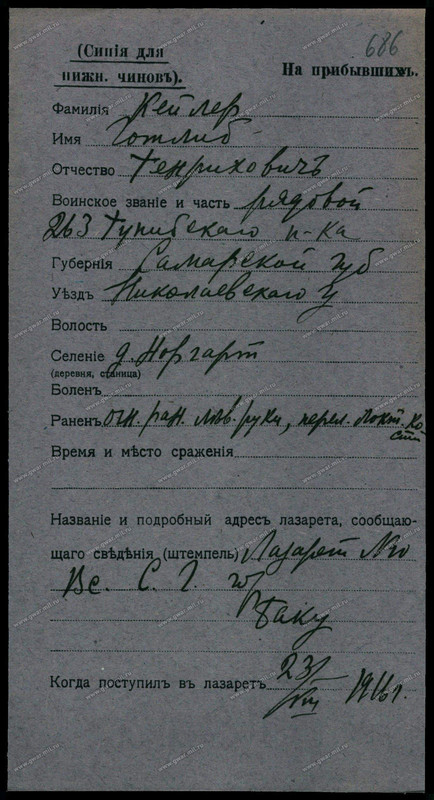 686
(Синія для
нижн. чиновъ).
На прибывшихъ.
Фамилія Кейлер
Имя Готлиб
Отчество Генриховичъ
Воинское званіе и часть рядовой
263 Гунибскаго п-ка
Губернія Самарской губ
Уѣздъ Николаевскаго у
Волость
Селеніе д. Норгарт
(деревня, станица)
Боленъ
Раненъ огн. ран. лѣв. руки, перел. локт. ко
сти
Время и мѣсто сраженія
Названіе и подробный адресъ лазарета, сообщаю-
щаго свѣдѣнія (штемпель) Лазарет №10
Вс. С. Г.
Баку
Когда поступилъ въ лазаретъ 23/VIII 1916 г.